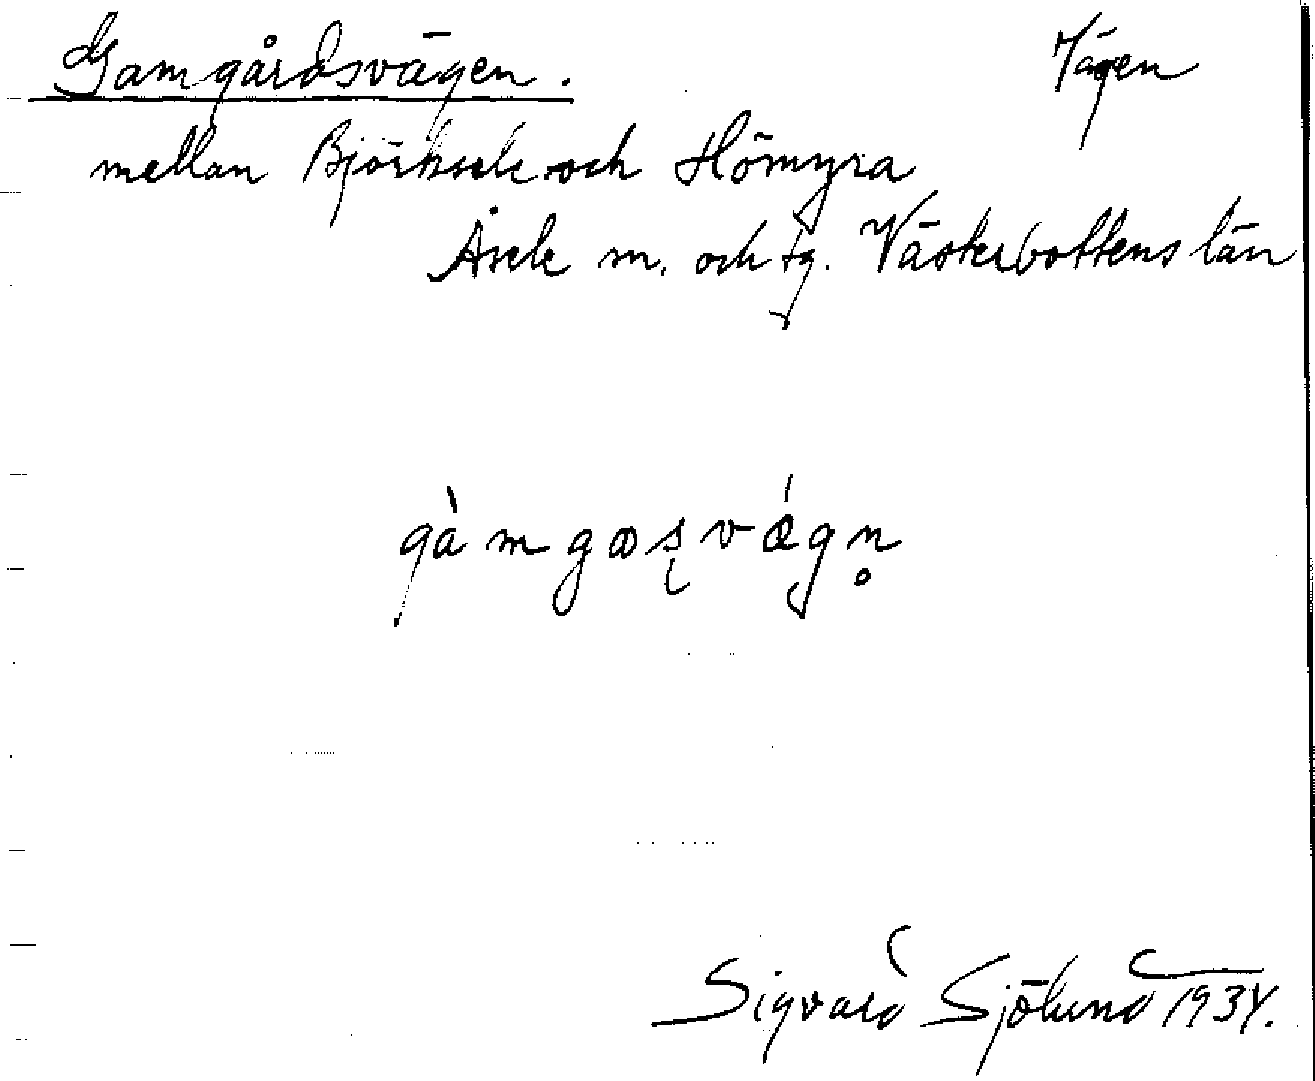 Gamgårdsvägen. Vägen
mellan Björksele och Hömyra
Åsele sn. och tg. Västerbottens län
gàmgoșvǽgn̥
Sigvard Sjölund 1934.